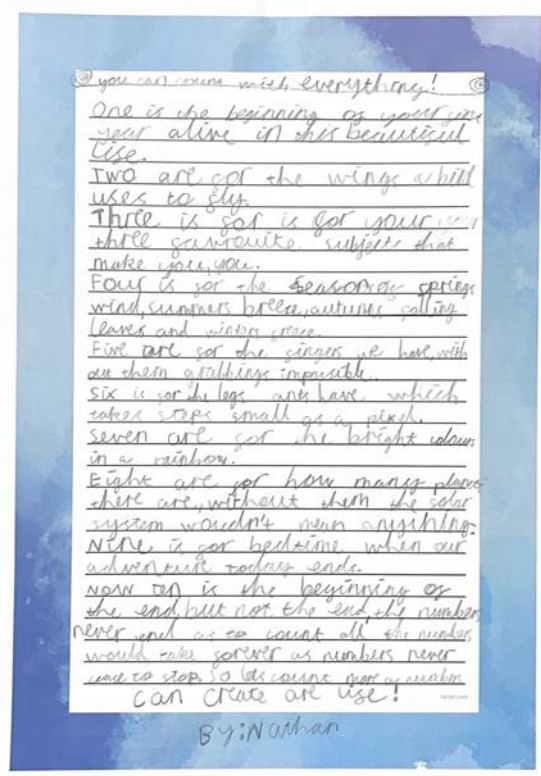 you can count with everything!
One is the beginning of your
year alive in this beautiful
life.
Two are for the wings a bird
uses to fly.
Three is for is for your
three favrouite subjects that
make you, you.
Four is for the season of springs
wind, summers breeze, autumns falling
leaves and winters
Five are for the fingers we have, with
out them grabbings impossible.
Six is for the legs ants have which
takes steps small as a pixel.
Seven are for the bright colours
in a rainbow.
Eight are for how many planets
there are, without them the solar
system wouldn't mean anything.
Nine is for bedtime when our
adventure today ends.
Now ten is the beginning of
the end, but not the end, the numbers
never end as to count all the numbers
would take forever as numbers never
come to stop. So lets count more as numbers
can create are life!
By: Nathan